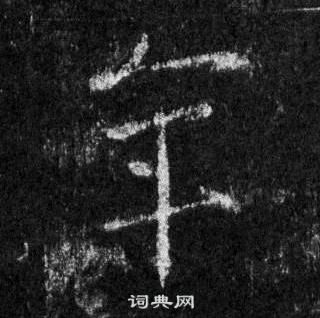 年
词典网